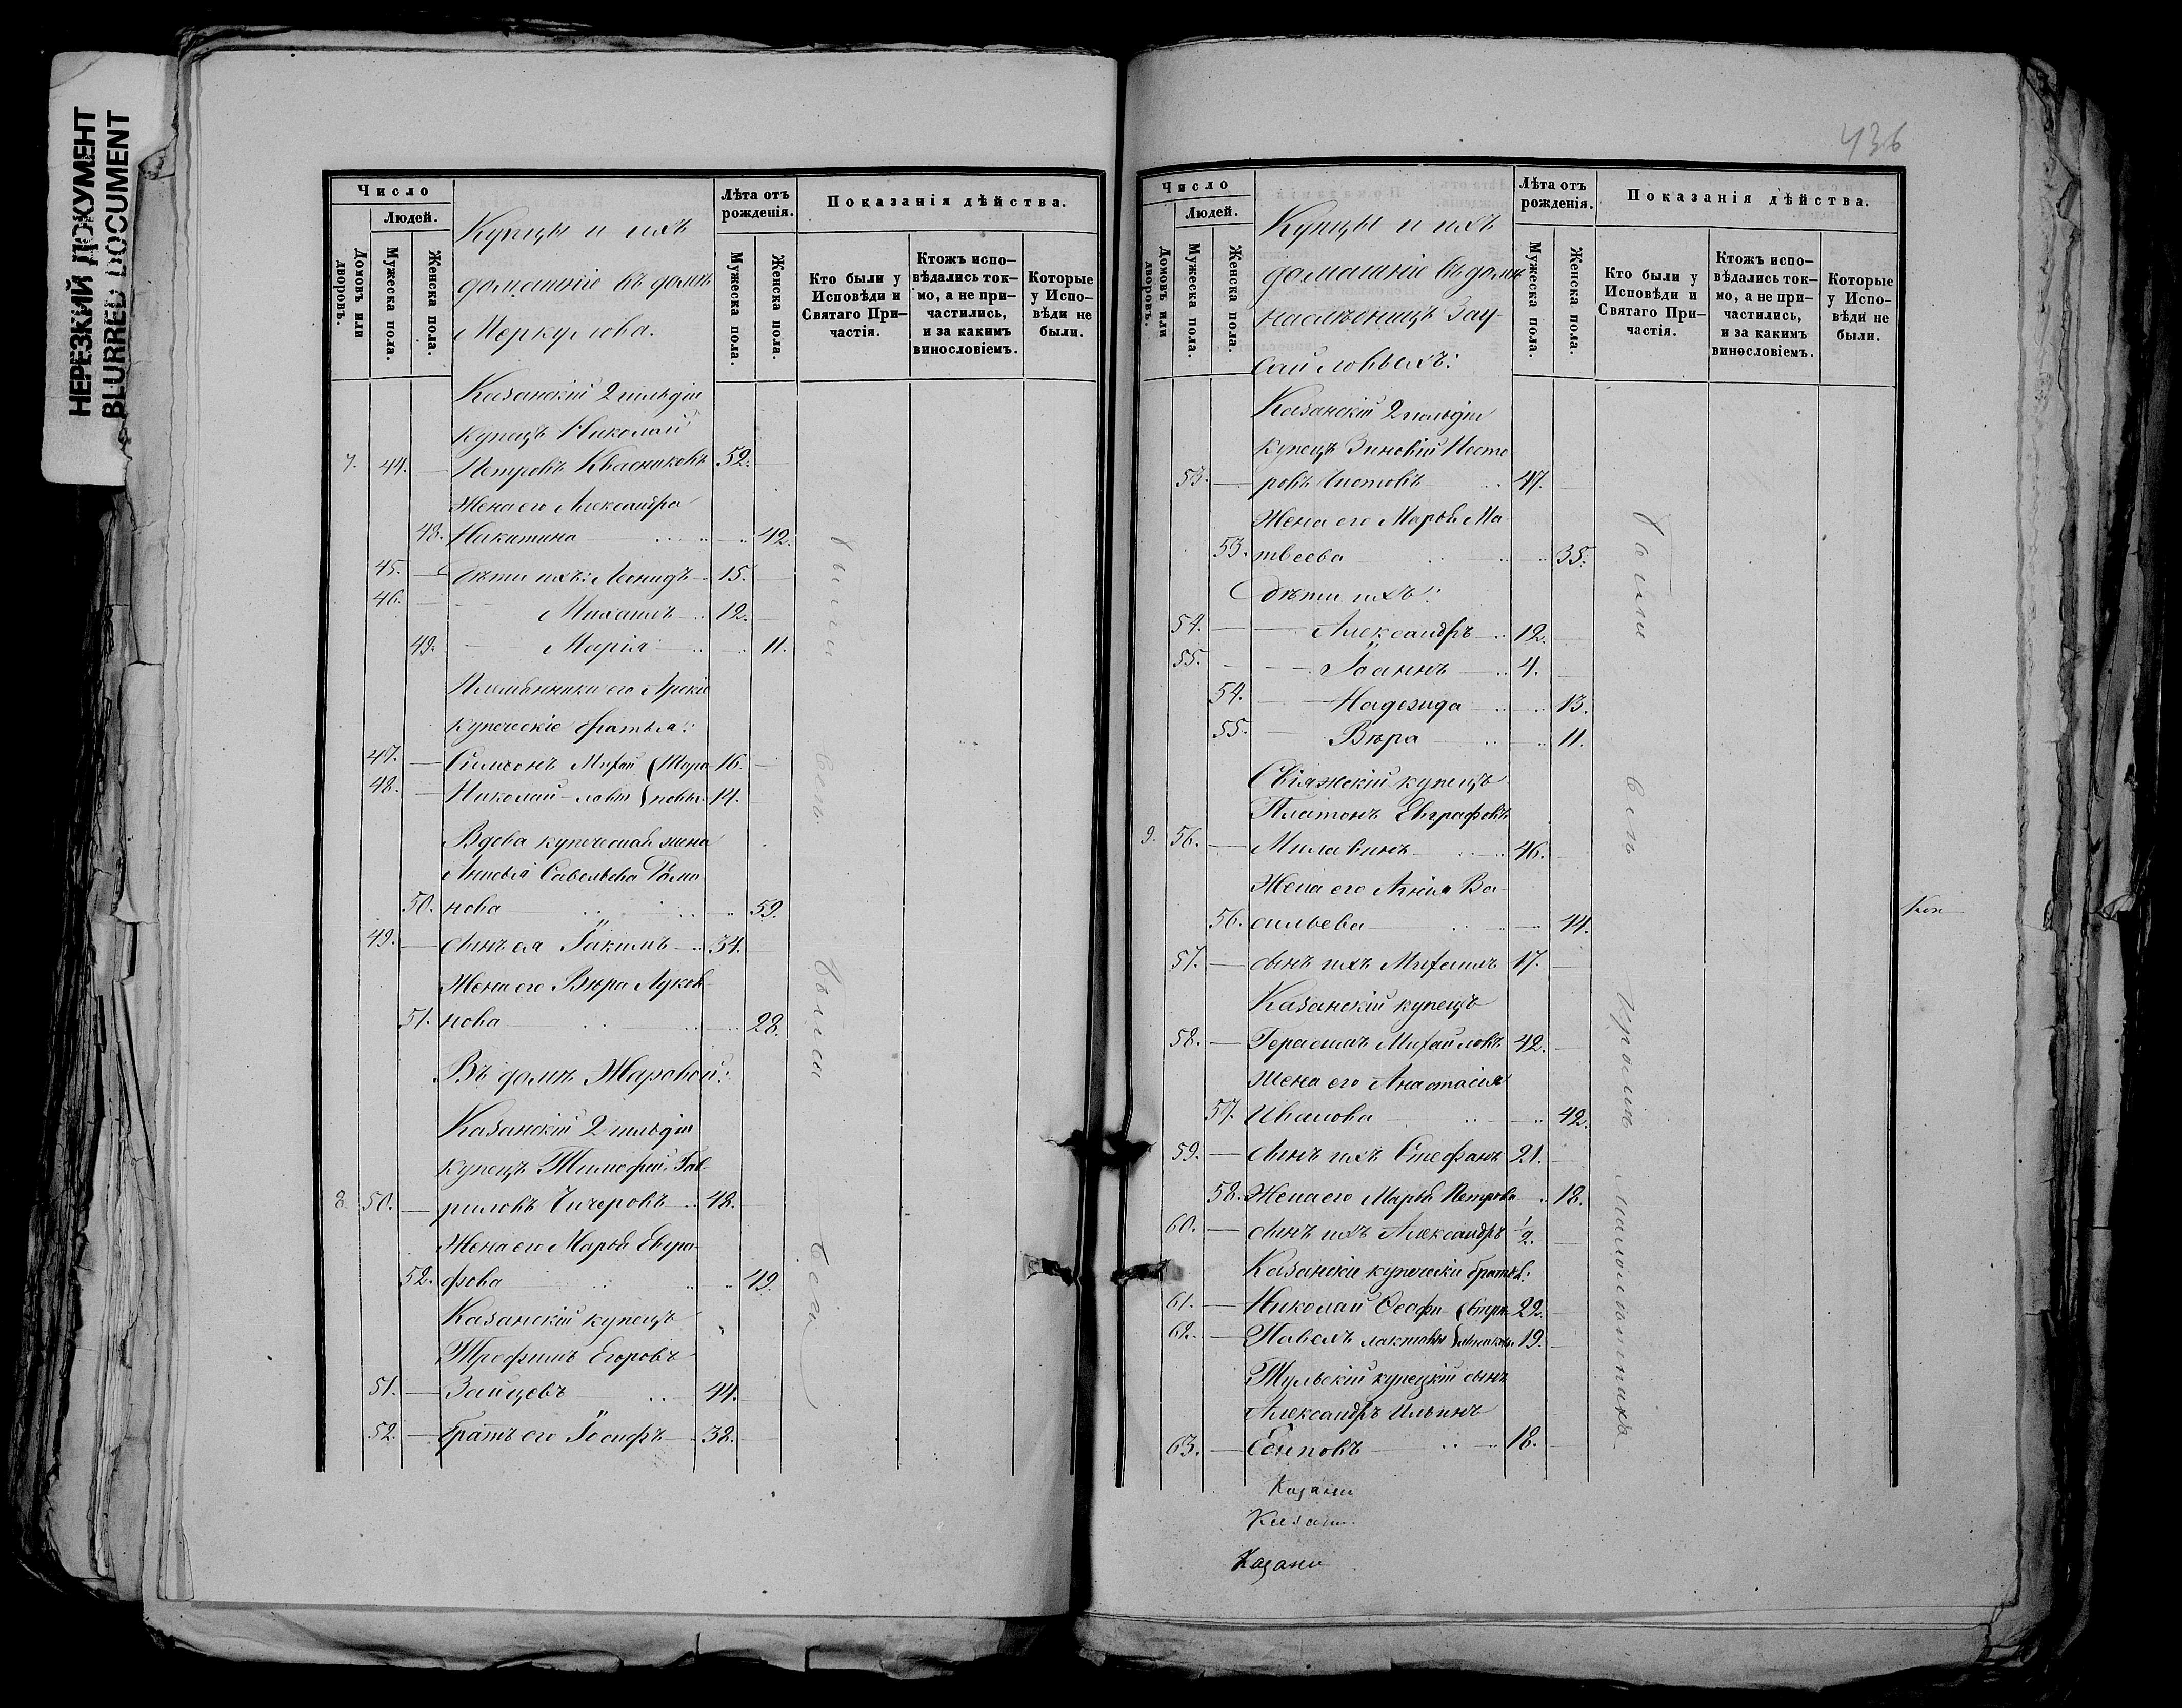 НЕРЕЗКИЙ ДОКУМЕНТ
BLURRED DOCUMENT
Число
Людей.
Домовъ или дворовъ.
Мужеска пола.
Женска пола.
Купцы и ихъ
домашніе въ домѣ
Меркулова.
Лѣта отъ рожденія.
Мужеска пола.
Женска пола.
Показанія дѣйства.
Кто были у Исповѣди и Святаго Причастія.
Ктожъ исповѣдались токмо, а не причастились, и за какимъ винословіемъ.
Которые у Исповѣди не были.
Казанскій 2 гильдіи
купецъ Николай
7. 44. Петровъ Квасниковъ 52.
Жена его Александра
48. Никитина 42.
45. Дѣти ихъ: Леонидъ 15.
46. Михаилъ 12.
49. Марія 11.
Племянники его Арскіе
купеческіе братья:
47. Симеонъ Михай 16.
48. Николай ловы 14.
Вдова купеческая жена
Савельева Рома
50. нова 59.
49. Сынъ ея Іакимъ 34.
Жена его Вѣра Лукья
51. нова 28.
Въ домѣ Жаровой:
Казанскій 2 гильдіи
купецъ Тимофей Гав
8. 50. риловъ Чичеровъ 48.
Жена его Марья Евгра
52. фова 49.
Казанскій купецъ
Трофимъ Егоровъ
51. Зайцевъ 44.
52. Братъ его Іосифъ 32.
были
вси
были
вси
436
Число
Людей.
Домовъ или дворовъ.
Мужеска пола.
Женска пола.
Купцы и ихъ
домашніе въ домѣ
наслѣдницъ Зау-
сайловыхъ:
Лѣта отъ рожденія.
Мужеска пола.
Женска пола.
Показанія дѣйства.
Кто были у Исповѣди и Святаго Причастія.
Ктожъ исповѣдались токмо, а не причастились, и за какимъ винословіемъ.
Которые у Исповѣди не были.
Казанскій 2 гильдіи
купецъ Зиновій Несто
53. ровъ Чистовъ 47.
Жена его Марья Ма
53. твеева 35.
Дѣти ихъ:
54. Александръ 12.
55. Іоаннъ 4.
54. Надежда 13.
55. Вѣра 11.
Свіяжскій купецъ
Платонъ Евграфовъ
9. 56. Милавинъ 46.
Жена его Анна Ва-
56. сильева 44.
57. Сынъ ихъ Михаилъ 17.
Казанскій купецъ
58. Герасимъ Михайловъ 42.
Жена его Анастасія
57. Иванова 42.
59. Сынъ ихъ Стефанъ 21.
58. Жена его Марья Петрова 18.
60. Сынъ ихъ Александръ 1/2.
Казанскіе купечески братья:
61. Николай Феофи 22.
62. Павелъ лактовы 19.
Тульскій купецкій сынъ
Александръ Ильинъ
63. Есиповъ 18.
были
вси
кромѣ
малолѣтныхъ
Казани
Казани
Казани